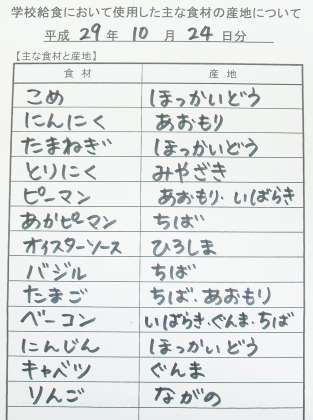 学校給食において使用した主な食材の産地について
平成 29 年 10 月 24 日分
【主な食材と産地】
食 材 産 地
こめ ほっかいどう
にんにく あおもり
たまねぎ ほっかいどう
とりにく みやざき
ピーマン あおもり・いばらき
あかピーマン ちば
オイスターソース ひろしま
バジル ちば
たまご ちば・あおもり
ベーコン いばらき・ぐんま・ちば
にんじん ほっかいどう
キャベツ ぐんま
りんご ながの